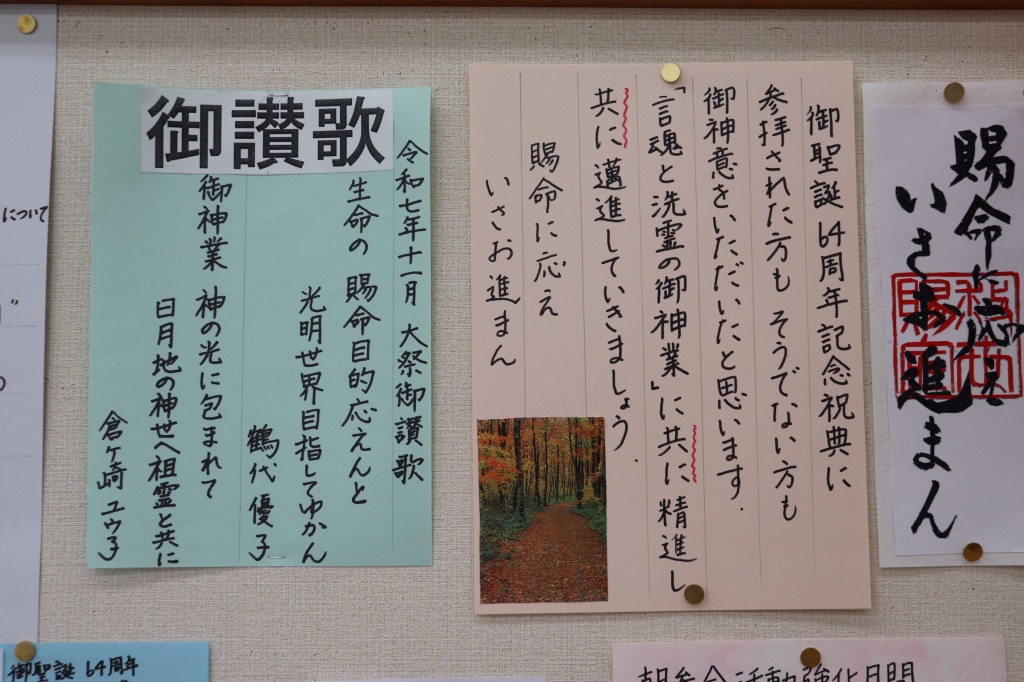 について
御讃歌
令和七年十一月 大祭御讃歌
生命の 賜命目的応えんと
光明世界目指してゆかん
鶴代優子
御神業 神の光に包まれて
日月地の神世へ祖霊と共に
倉ヶ崎 ユウ子
御聖誕64周年記念祝典に
参拝された方も そうでない方も
御神意をいただいたと思います.
「言魂と洗霊の御神業」に共に精進し
共に邁進していきましょう.
賜命に応え
いさお進まん
賜命に応え
いさお進まん
御聖誕 64周年
朝参会活動強化月間